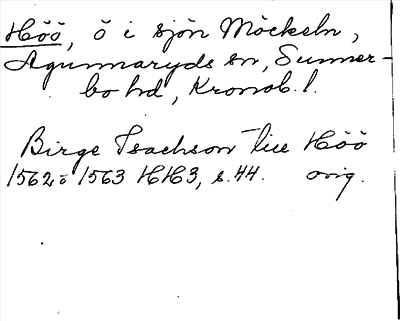 Höö, ö i sjön Möckeln,
Agunnaryds sn, Sunner-
bo hd, Kronob. l.
Birge Isachson till Höö
1562 o 1563 HH3, s. 44. orig.